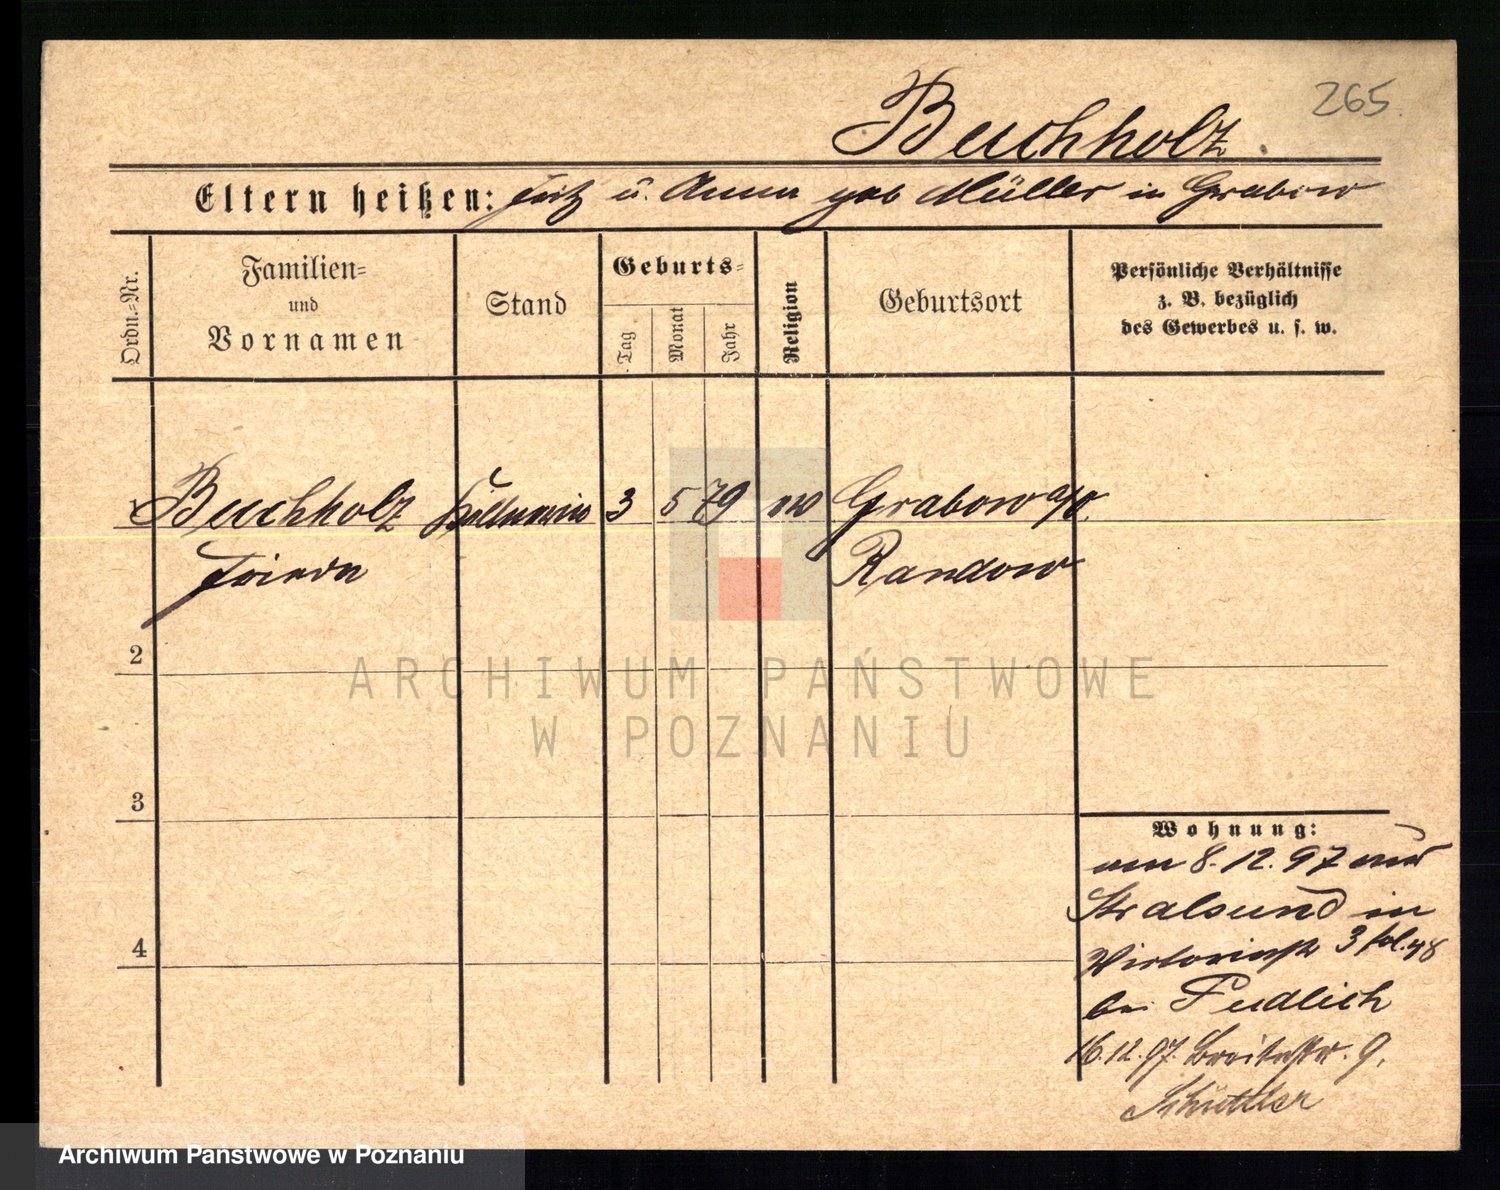 265
Buchholz.
Eltern heißen: Fritz u. Anna geb Müller in Grabow
Ordn.-Nr.
Familien-
und
Vornamen
Stand
Geburts-
Tag
Monat
Jahr
Religion
Geburtsort
Persönliche Verhältnisse
z. B. bezüglich
des Gewerbes u. s. w.
1 Buchholz Kellnerin 3 5 79 ev Grabow a/O.
Frieda Randow
2
3
4
Wohnung:
am 8.12.97 aus
Stralsund in
Victoriastr 3
bei
16.12.97. Breitestr. 9.
ARCHIWUM PAŃSTWOWE
W POZNANIU
Archiwum Państwowe w Poznaniu